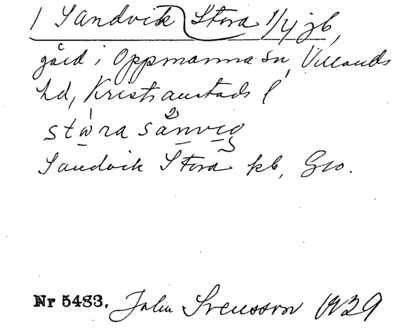 1 Sandvik Stora 1/4 jb,
gård i Oppmanna sn, Villands
hd, Kristianstads l
stora sanveg
Sandvik Stora kb, Geo.
Nr 5483. John Svensson 1929